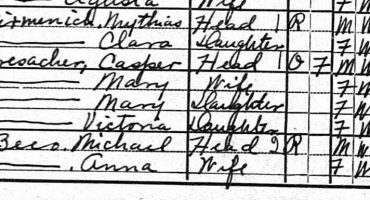 Wife
Mythias Head 1 R M W
Clara Daughter F W
Casper Head 1 O F M W
Mary Wife F W
Mary Daughter F W
Victoria Daughter F W
Michael Head 2 R M W
Anna Wife F W